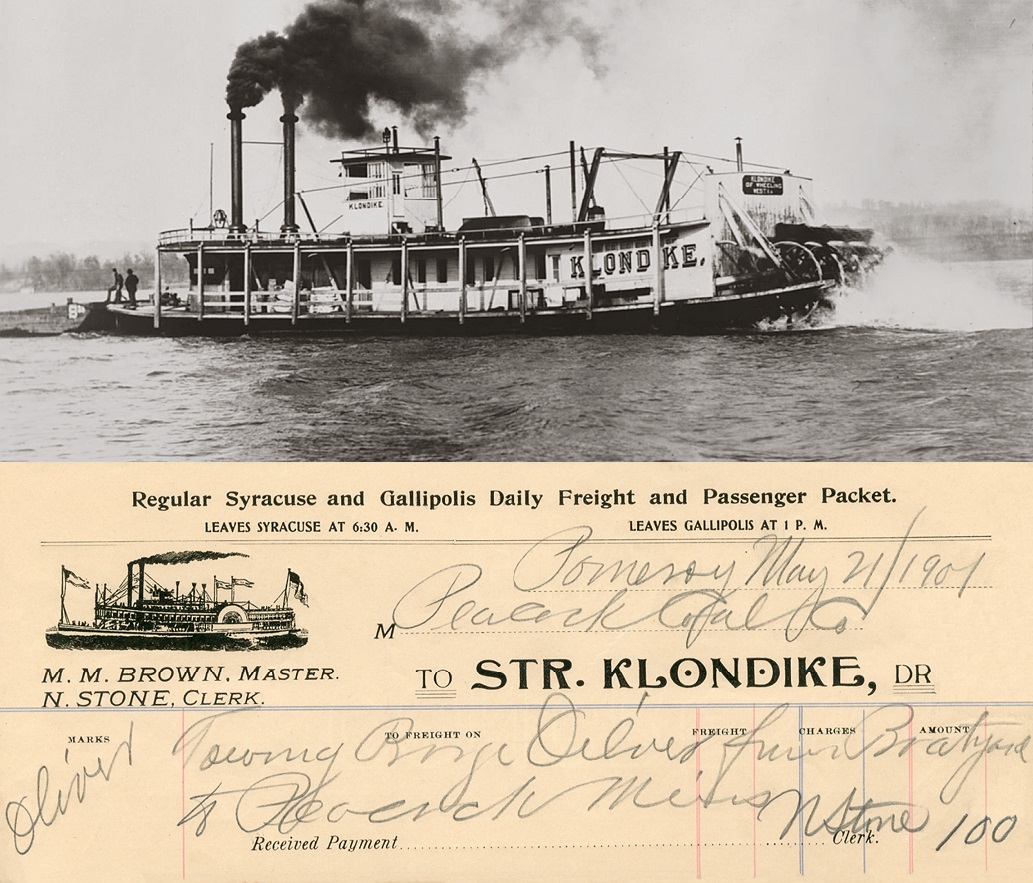 KLONDIKE
OF WHEELING
WEST VA
KLONDIKE
KLONDIKE.
Regular Syracuse and Gallipolis Daily Freight and Passenger Packet.
LEAVES SYRACUSE AT 6:30 A. M. LEAVES GALLIPOLIS AT 1 P. M.
Pomeroy May 21/1901
M Peacock Coal Co
M. M. BROWN, MASTER.
N. STONE, CLERK.
TO STR. KLONDIKE, DR
MARKS TO FREIGHT ON FREIGHT CHARGES AMOUNT
Oliver Towing Barge Oliver from Boatyard
to Peacock Mines N Stone 100
Received Payment Clerk.